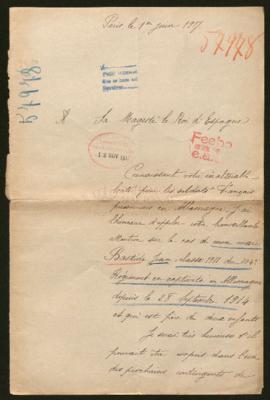 Paris le 1er juin 1917
57978
57978
A Sa Majesté le Roi d'Espagne
Connaissant votre inaltérable
bonté pour les soldats français
prisonniers en Allemagne j'ai
l'honneur d'appeler votre bienveillante
attention sur le cas de mon mari
Bastide Jean classe 1911 du
Régiment en captivité en Allemagne
depuis le 28 Septembre 1914
et qui est père de deux enfants
Je serais très heureuse s'il
pouvait être
des prochains contingents de